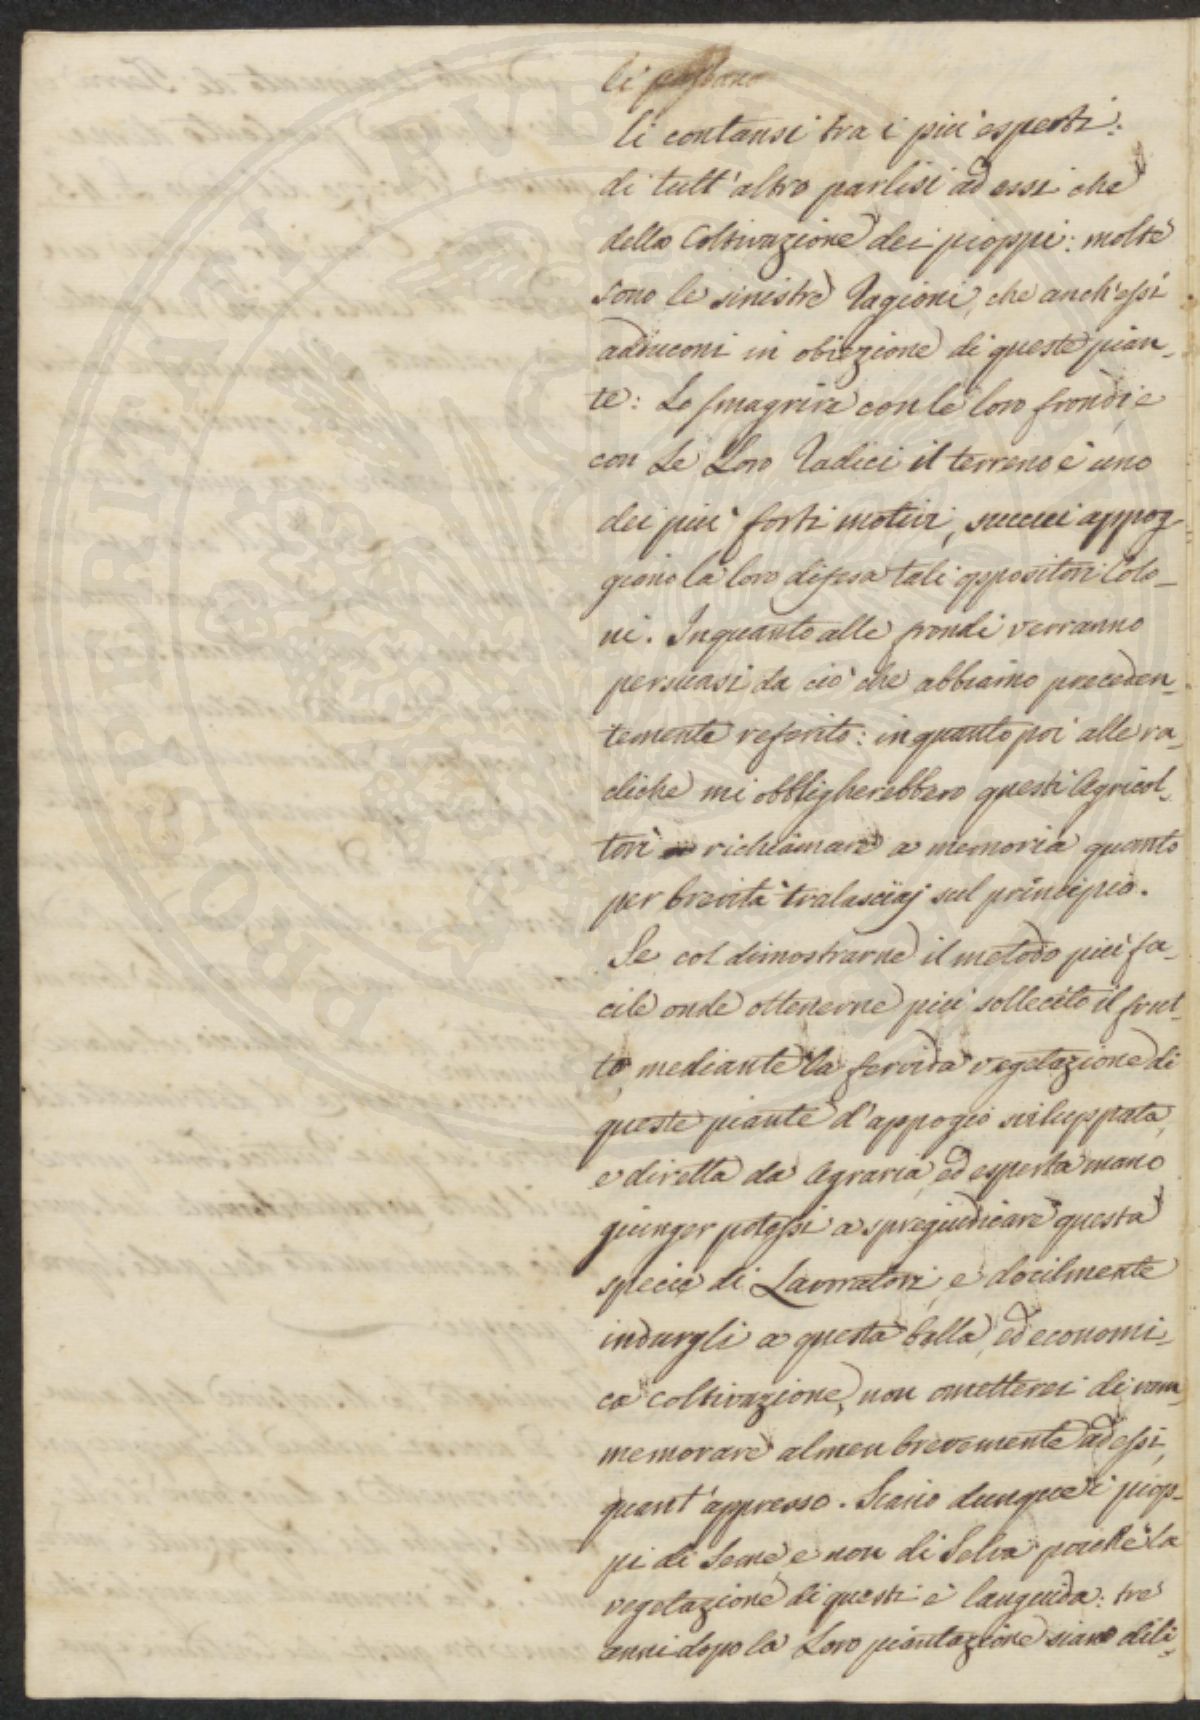 li possono
li contansi tra i più esperti:
di tutt'altro parlisi ad essi che
della Coltivazione dei pioppi: molte
sono le sinistre Ragioni, che anch'essi
adduconi in obiezione di queste pian-
te: Lo smagrire con le loro frondi, e
con Le Loro Radici il terreno è uno
dei più forti motivi, su cui appog-
giano la loro difesa tali oppositori Colo-
ni. In quanto alle frondi verranno
persuasi da ciò che abbiamo preceden-
temente referito: in quanto poi alle ra-
diche mi obbligherebbero questi Agricol-
tori richiamare a memoria quanto
per brevità tralasciaj sul principio.
Se col dimostrarne il metodo più fa-
cile onde ottenerne più sollecito il frut-
to, mediante la fervida vegetazione di
queste piante d'appogio sviluppata,
e diretta da Agraria, ed esperta mano
giunger potessi a spregiudicare questa
specie di Lavoratori, e docilmente
indurgli a questa bella, ed economi-
ca coltivazione, non ometterei di ram
memorare almen brevemente ad essi,
quant'appresso. Siano dunque i piop-
pi di Seme, e non di Selva poichè la
vegetazione di questi è languida: tre
anni dopo la Loro piantazione siano dili-
PROSPERITATI PVBLICAE